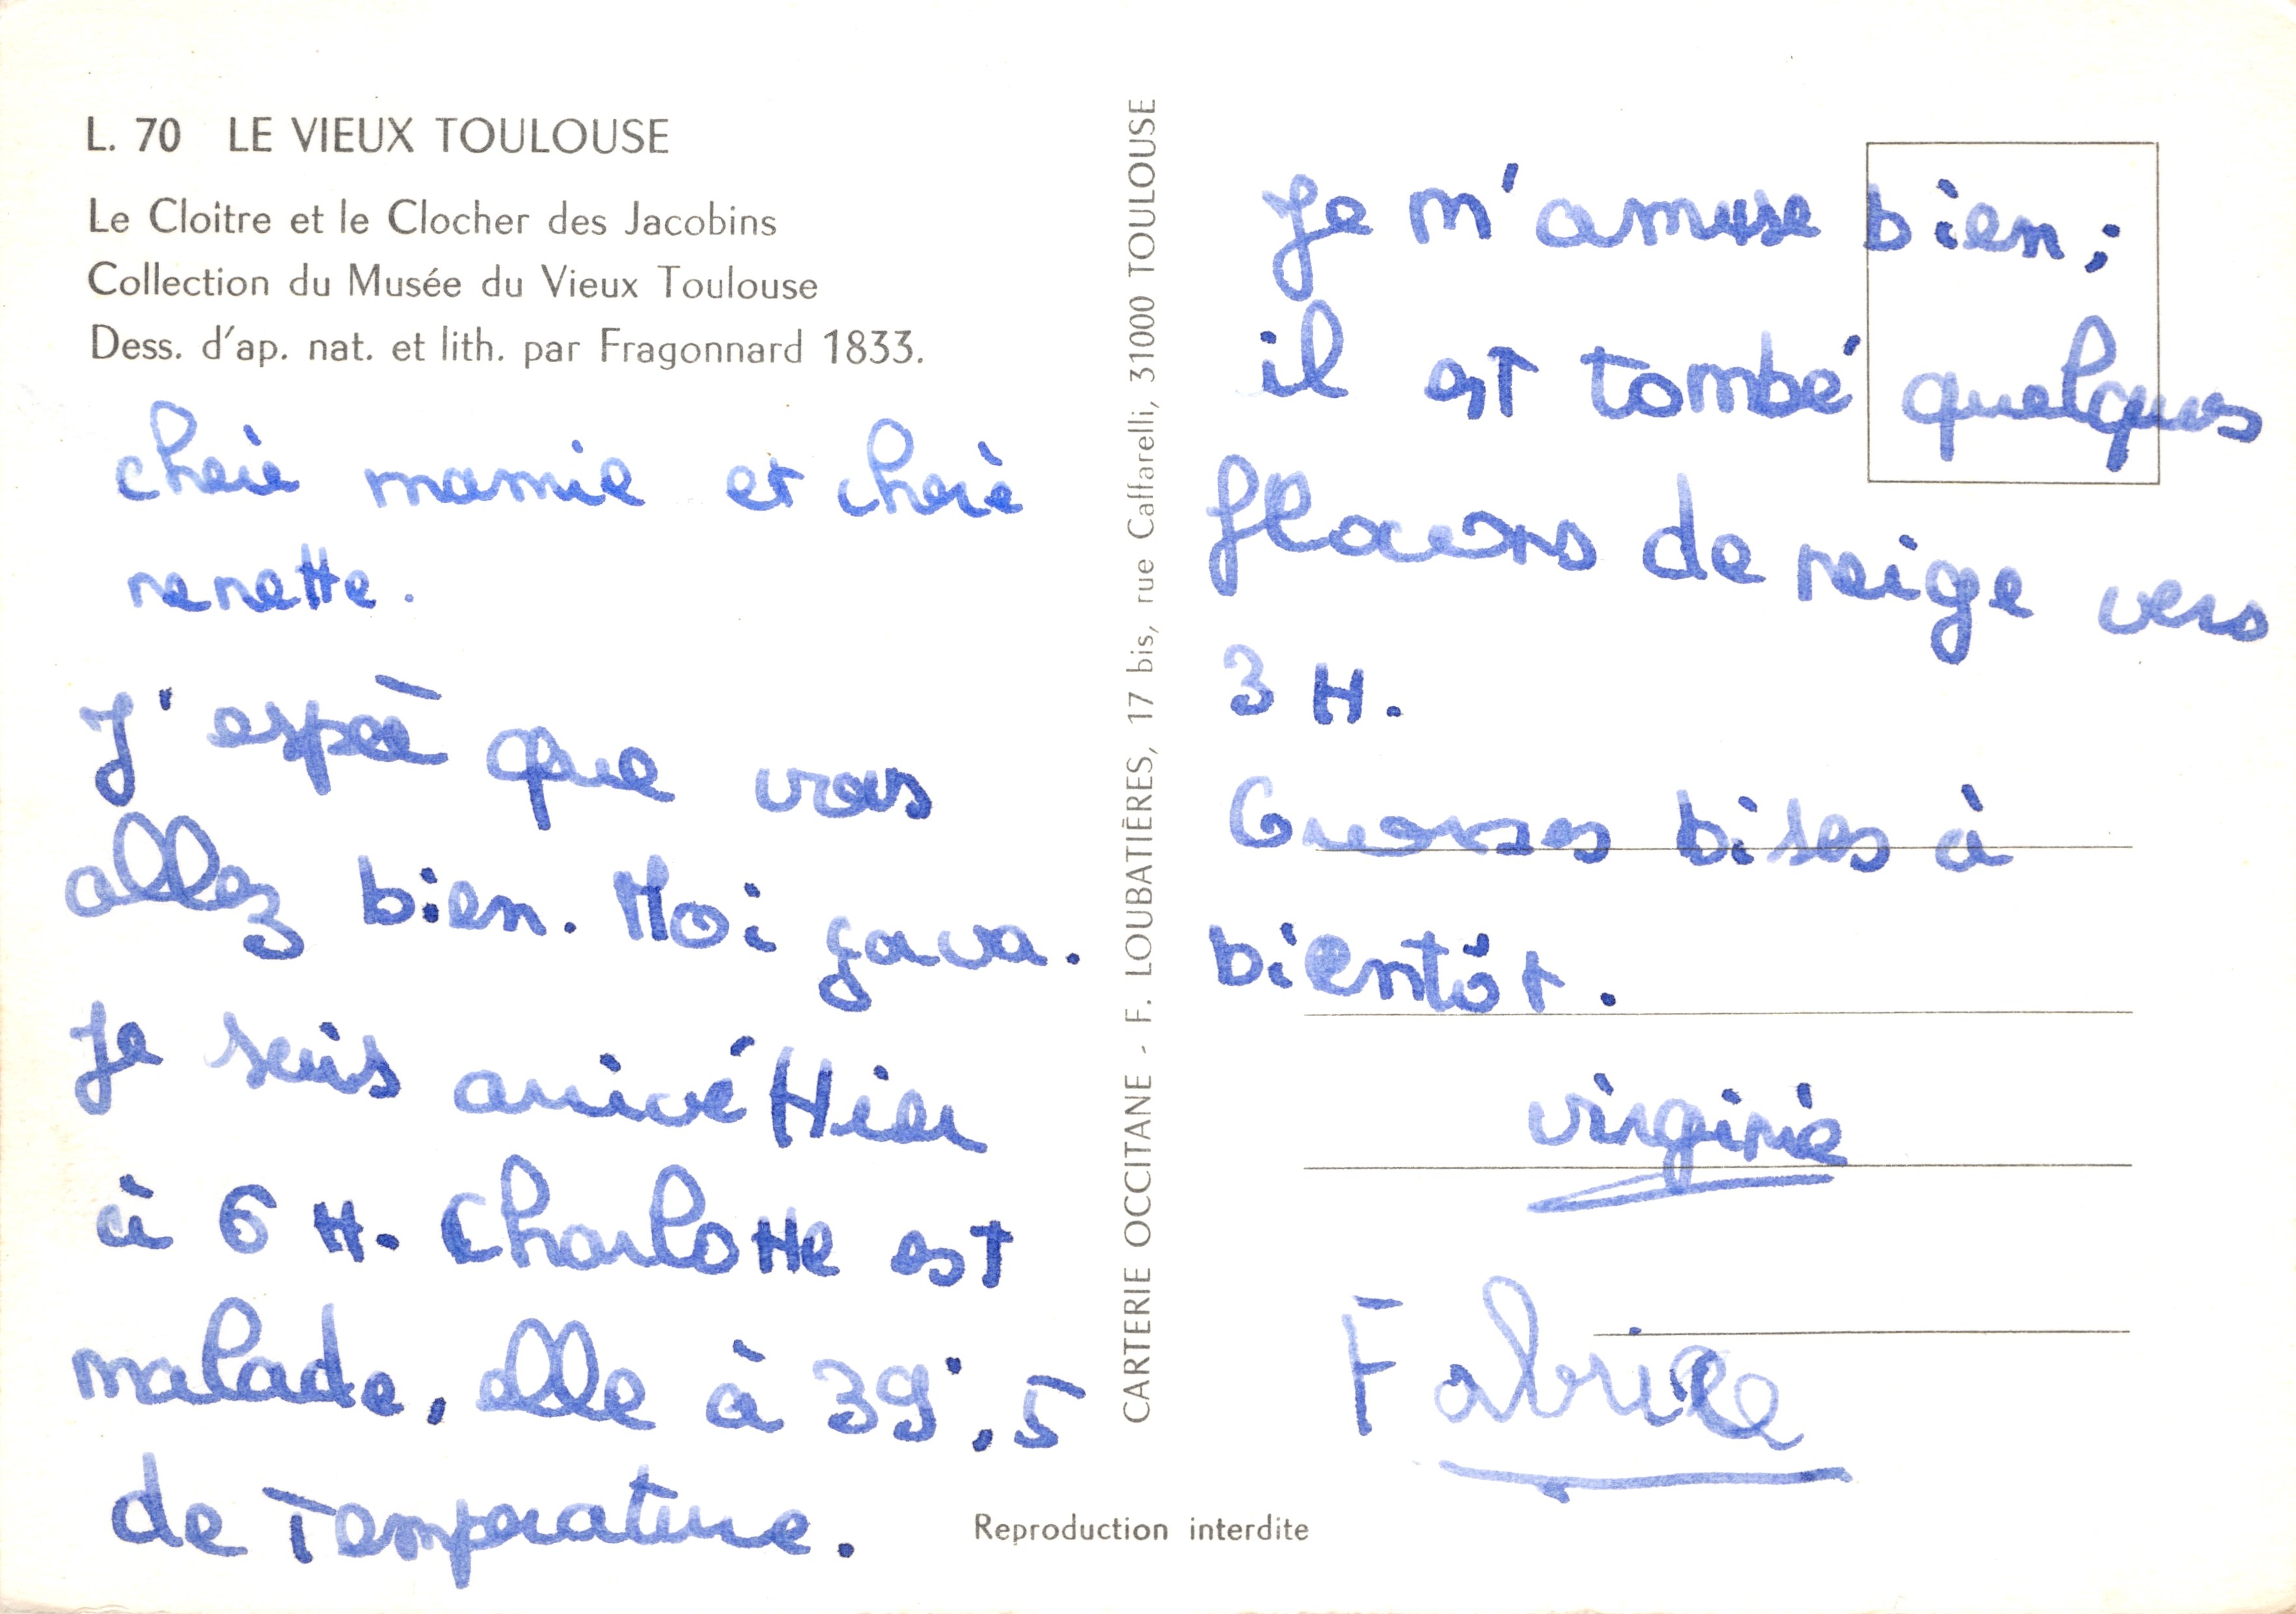 L. 70 LE VIEUX TOULOUSE
Le Cloître et le Clocher des Jacobins
Collection du Musée du Vieux Toulouse
Dess. d'ap. nat. et lith. par Fragonnard 1833.
cherie mamie et cherie
nenette.
J'espère que vous
allez bien. Moi ça va.
Je suis arrivé Hier
à 6 H. Charlotte est
malade, elle à 39°,5
de Temperature.
CARTERIE OCCITANE - F. LOUBATIÈRES, 17 bis, rue Caffarelli, 31000 TOULOUSE
Je m'amuse bien;
il est tombé quelques
flocons de neige vers
3 H.
Grosses bises à
bientôt.
virginie
Fabrice
Reproduction interdite